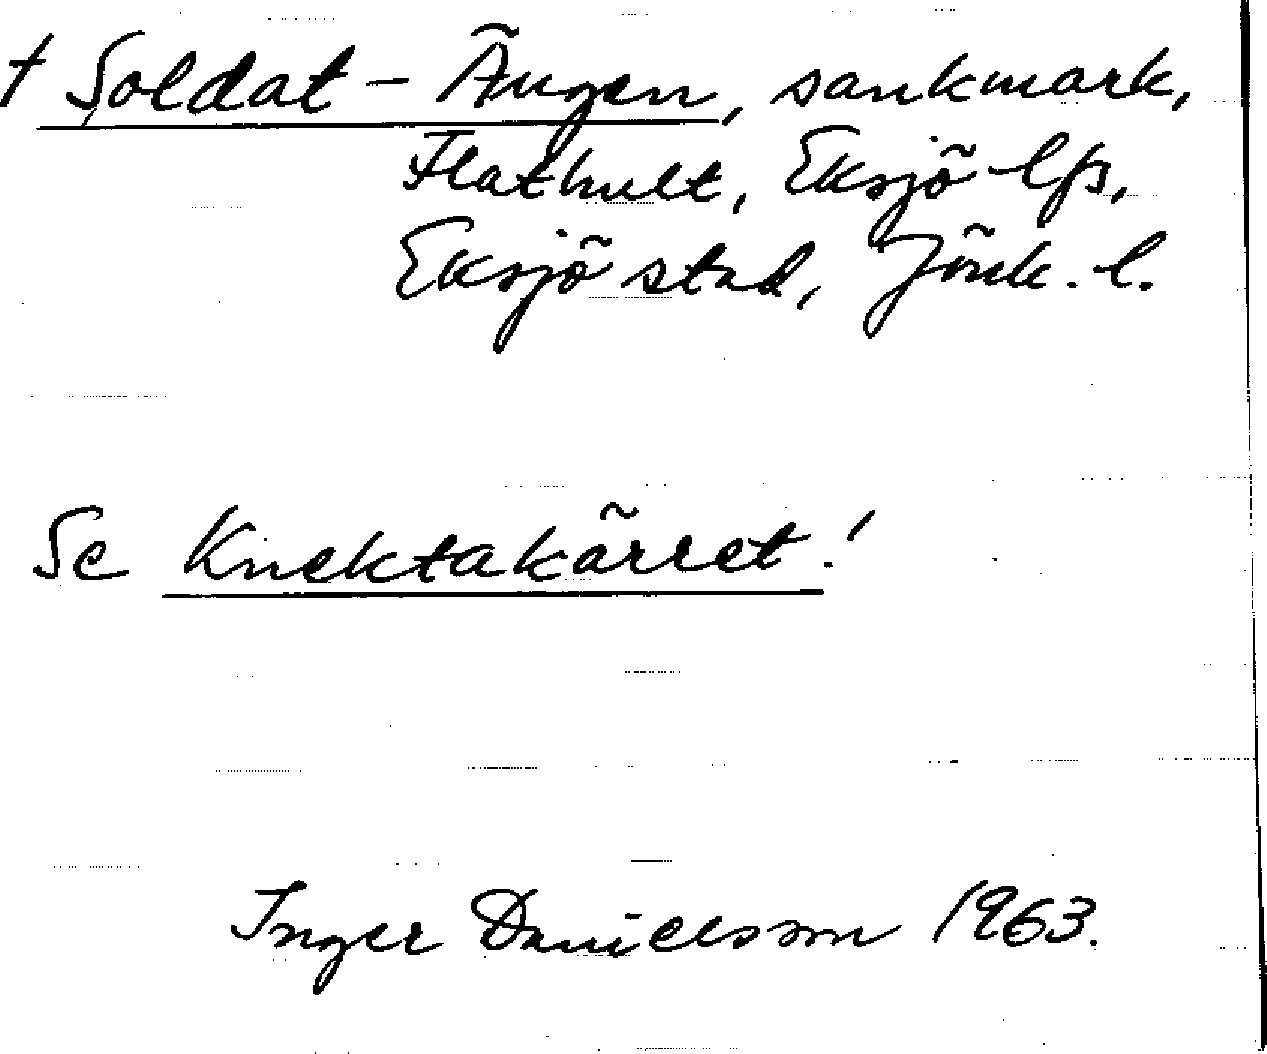 † Soldat-Ängen, sankmark,
Flathult, Eksjö lfs,
Eksjö stad, Jönk. l.
Se Knektakärret!
Inger Danielsson 1963.